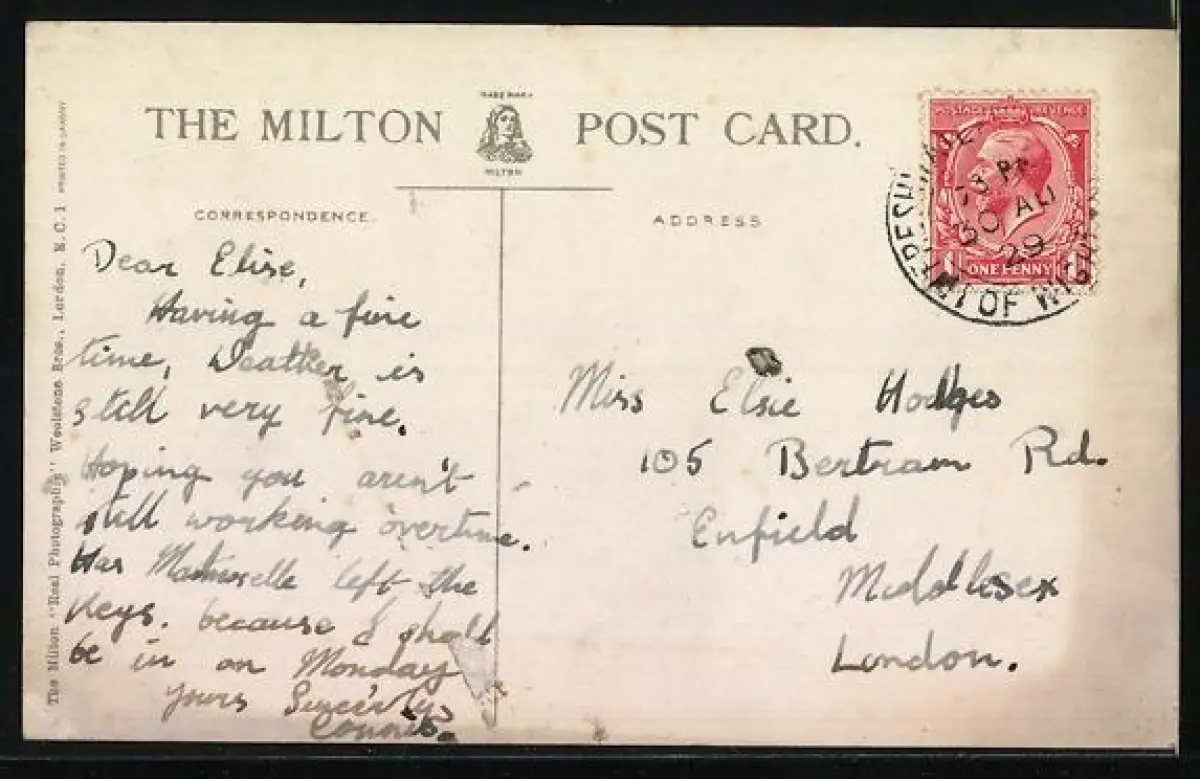 THE MILTON POST CARD.
TRADE MARK
MILTON
CORRESPONDENCE.
ADDRESS
Dear Elise,
Having a fine
time, Weather is
still very fine.
Hoping you aren't
still working overtime.
Has left the
Keys. because I shall
be in on Monday
Yours
Miss Elsie Hodges
105 Bertram Rd.
Enfield
Middlesex
London.
POSTAGE REVENUE
1 ONE PENNY 1
OF WIGHT
3 PM
30 AU
29
The Milton "Real Photography" Woolstone Bros., London, E.C. 1